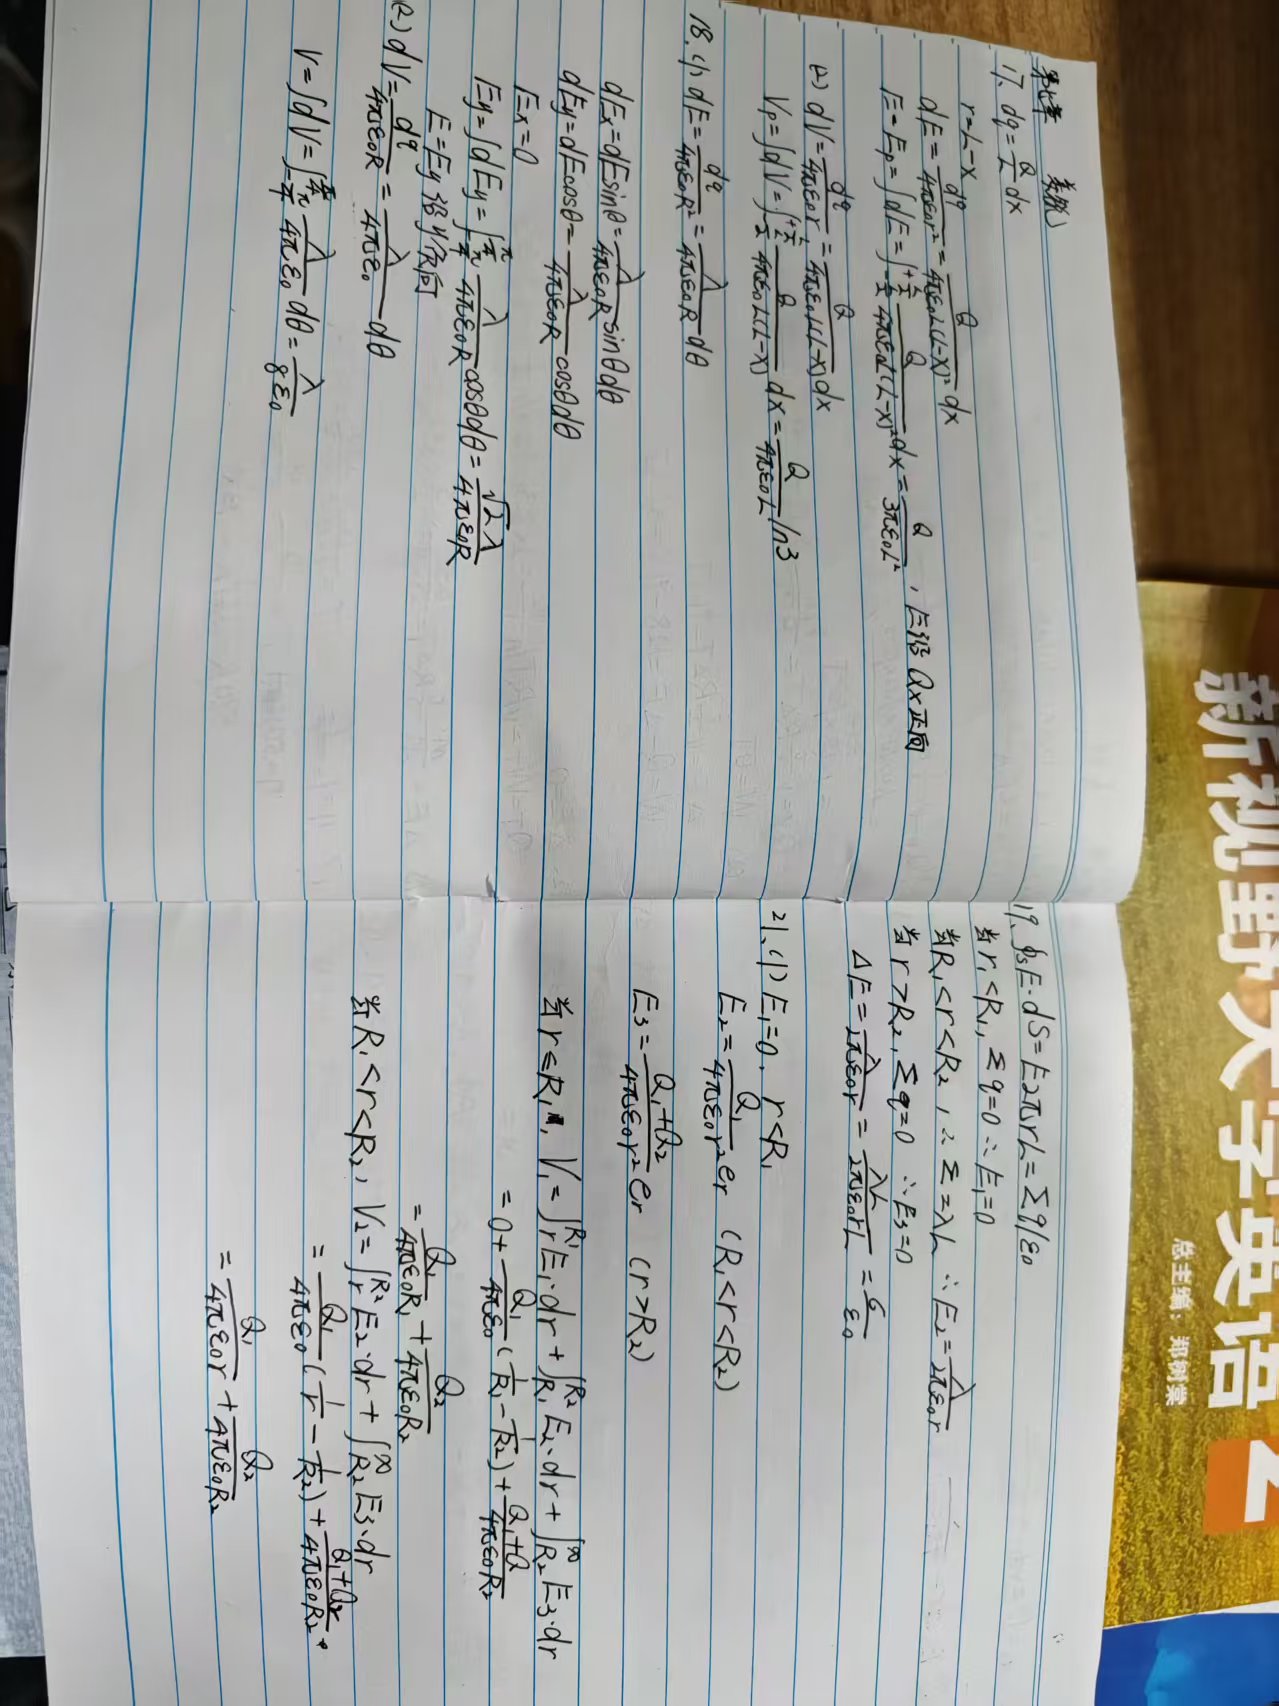 17、dq=Q/L dx
r=L-x
dE=dq/4πε₀r²=Q/4πε₀L(L-x)² dx
E=Ep=∫dE=∫_{-L/2}^{+L/2} Q/4πε₀L(L-x)² dx=Q/3πε₀L², E沿Ox正向
(2) dV=dq/4πε₀r=Q/4πε₀L(L-x) dx
Vp=∫dV=∫_{-L/2}^{+L/2} Q/4πε₀L(L-x) dx=Q/4πε₀L ln3
18、(1) dE=dq/4πε₀R²=λ/4πε₀R dθ
dEx=dEsinθ=λ/4πε₀R sinθdθ
dEy=dEcosθ=λ/4πε₀R cosθdθ
Ex=0
Ey=∫dEy=∫_{-π/4}^{π/4} λ/4πε₀R cosθdθ=√2λ/4πε₀R
E=Ey 沿y方向
(2) dV=dq/4πε₀R=λ/4πε₀ dθ
V=∫dV=∫_{-π/4}^{π/4} λ/4πε₀ dθ=λ/8ε₀
19、∮sE·dS=E2πrL=Σq/ε₀
当r₁<R₁, Σq=0 ∴E₁=0
当R₁<r<R₂, ∴Σ=λL ∴E₂=λ/2πε₀r
当r>R₂, Σq=0 ∴E₃=0
ΔE=λ/2πε₀r=λL/2πε₀rL=σ/ε₀
21、(1) E₁=0, r<R₁
E₂=Q₁/4πε₀r² er (R₁<r<R₂)
E₃=Q₁+Q₂/4πε₀r² er (r>R₂)
当r≤R₁, V₁=∫_r^{R₁}E₁·dr+∫_{R₁}^{R₂}E₂·dr+∫_{R₂}^{∞}E₃·dr
=0+Q₁/4πε₀(1/R₁-1/R₂)+Q₁+Q/4πε₀R₂
=Q₁/4πε₀R₁+Q₂/4πε₀R₂
当R₁<r<R₂, V₂=∫_r^{R₂}E₂·dr+∫_{R₂}^{∞}E₃·dr
=Q₁/4πε₀(1/r-1/R₂)+Q₁+Q₂/4πε₀R₂
=Q₁/4πε₀r+Q₂/4πε₀R₂
新视野大学英语 2
总主编：郑树棠